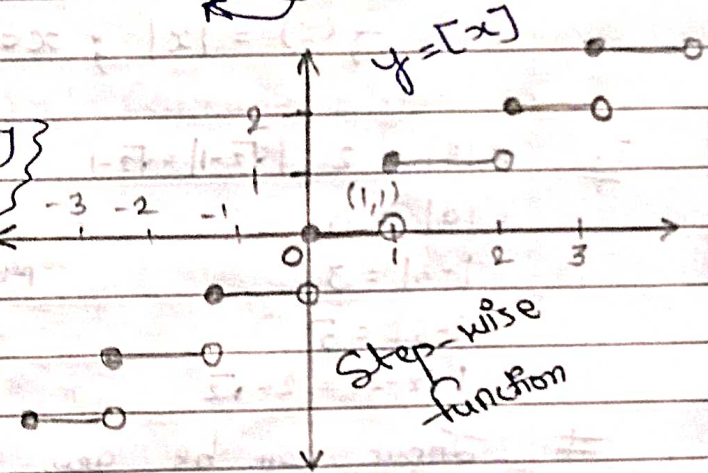 y=[x]
2
1
(1,1)
-3 -2 -1
0 1 2 3
Step-wise
function